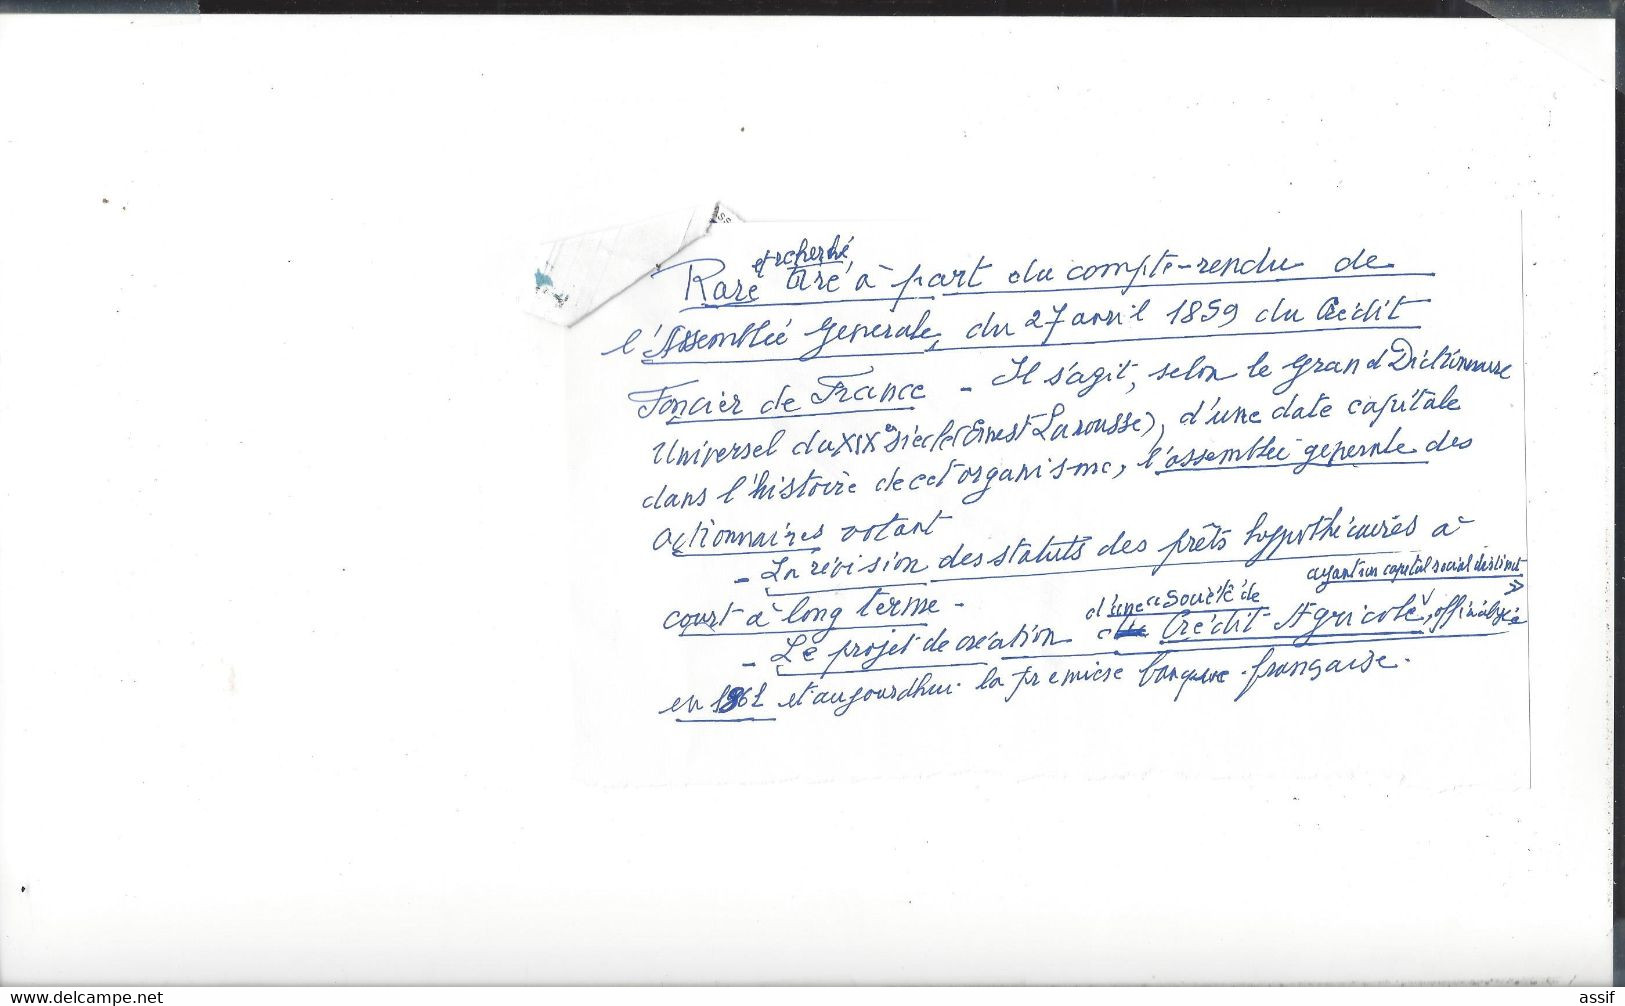 et recherché
Rare tiré à part du compte-rendu de
l'Assemblée Generale, du 27 avril 1859 du Crédit
Foncier de France - Il s'agit, selon le Grand Dictionnaire
Universel du XIXe siècle (Ernest Larousse), d'une date capitale
dans l'histoire de cet organisme, l'assemblée generale des
actionnaires votant
- La révision des statuts des prêts hypothécaires à
court à long terme -
ayant un capital social distinct
d'une "Société de
- Le projet de création Crédit Agricole", officialisée
en 1861 et aujourdhui la premiere banque française.
www.delcampe.net
assif